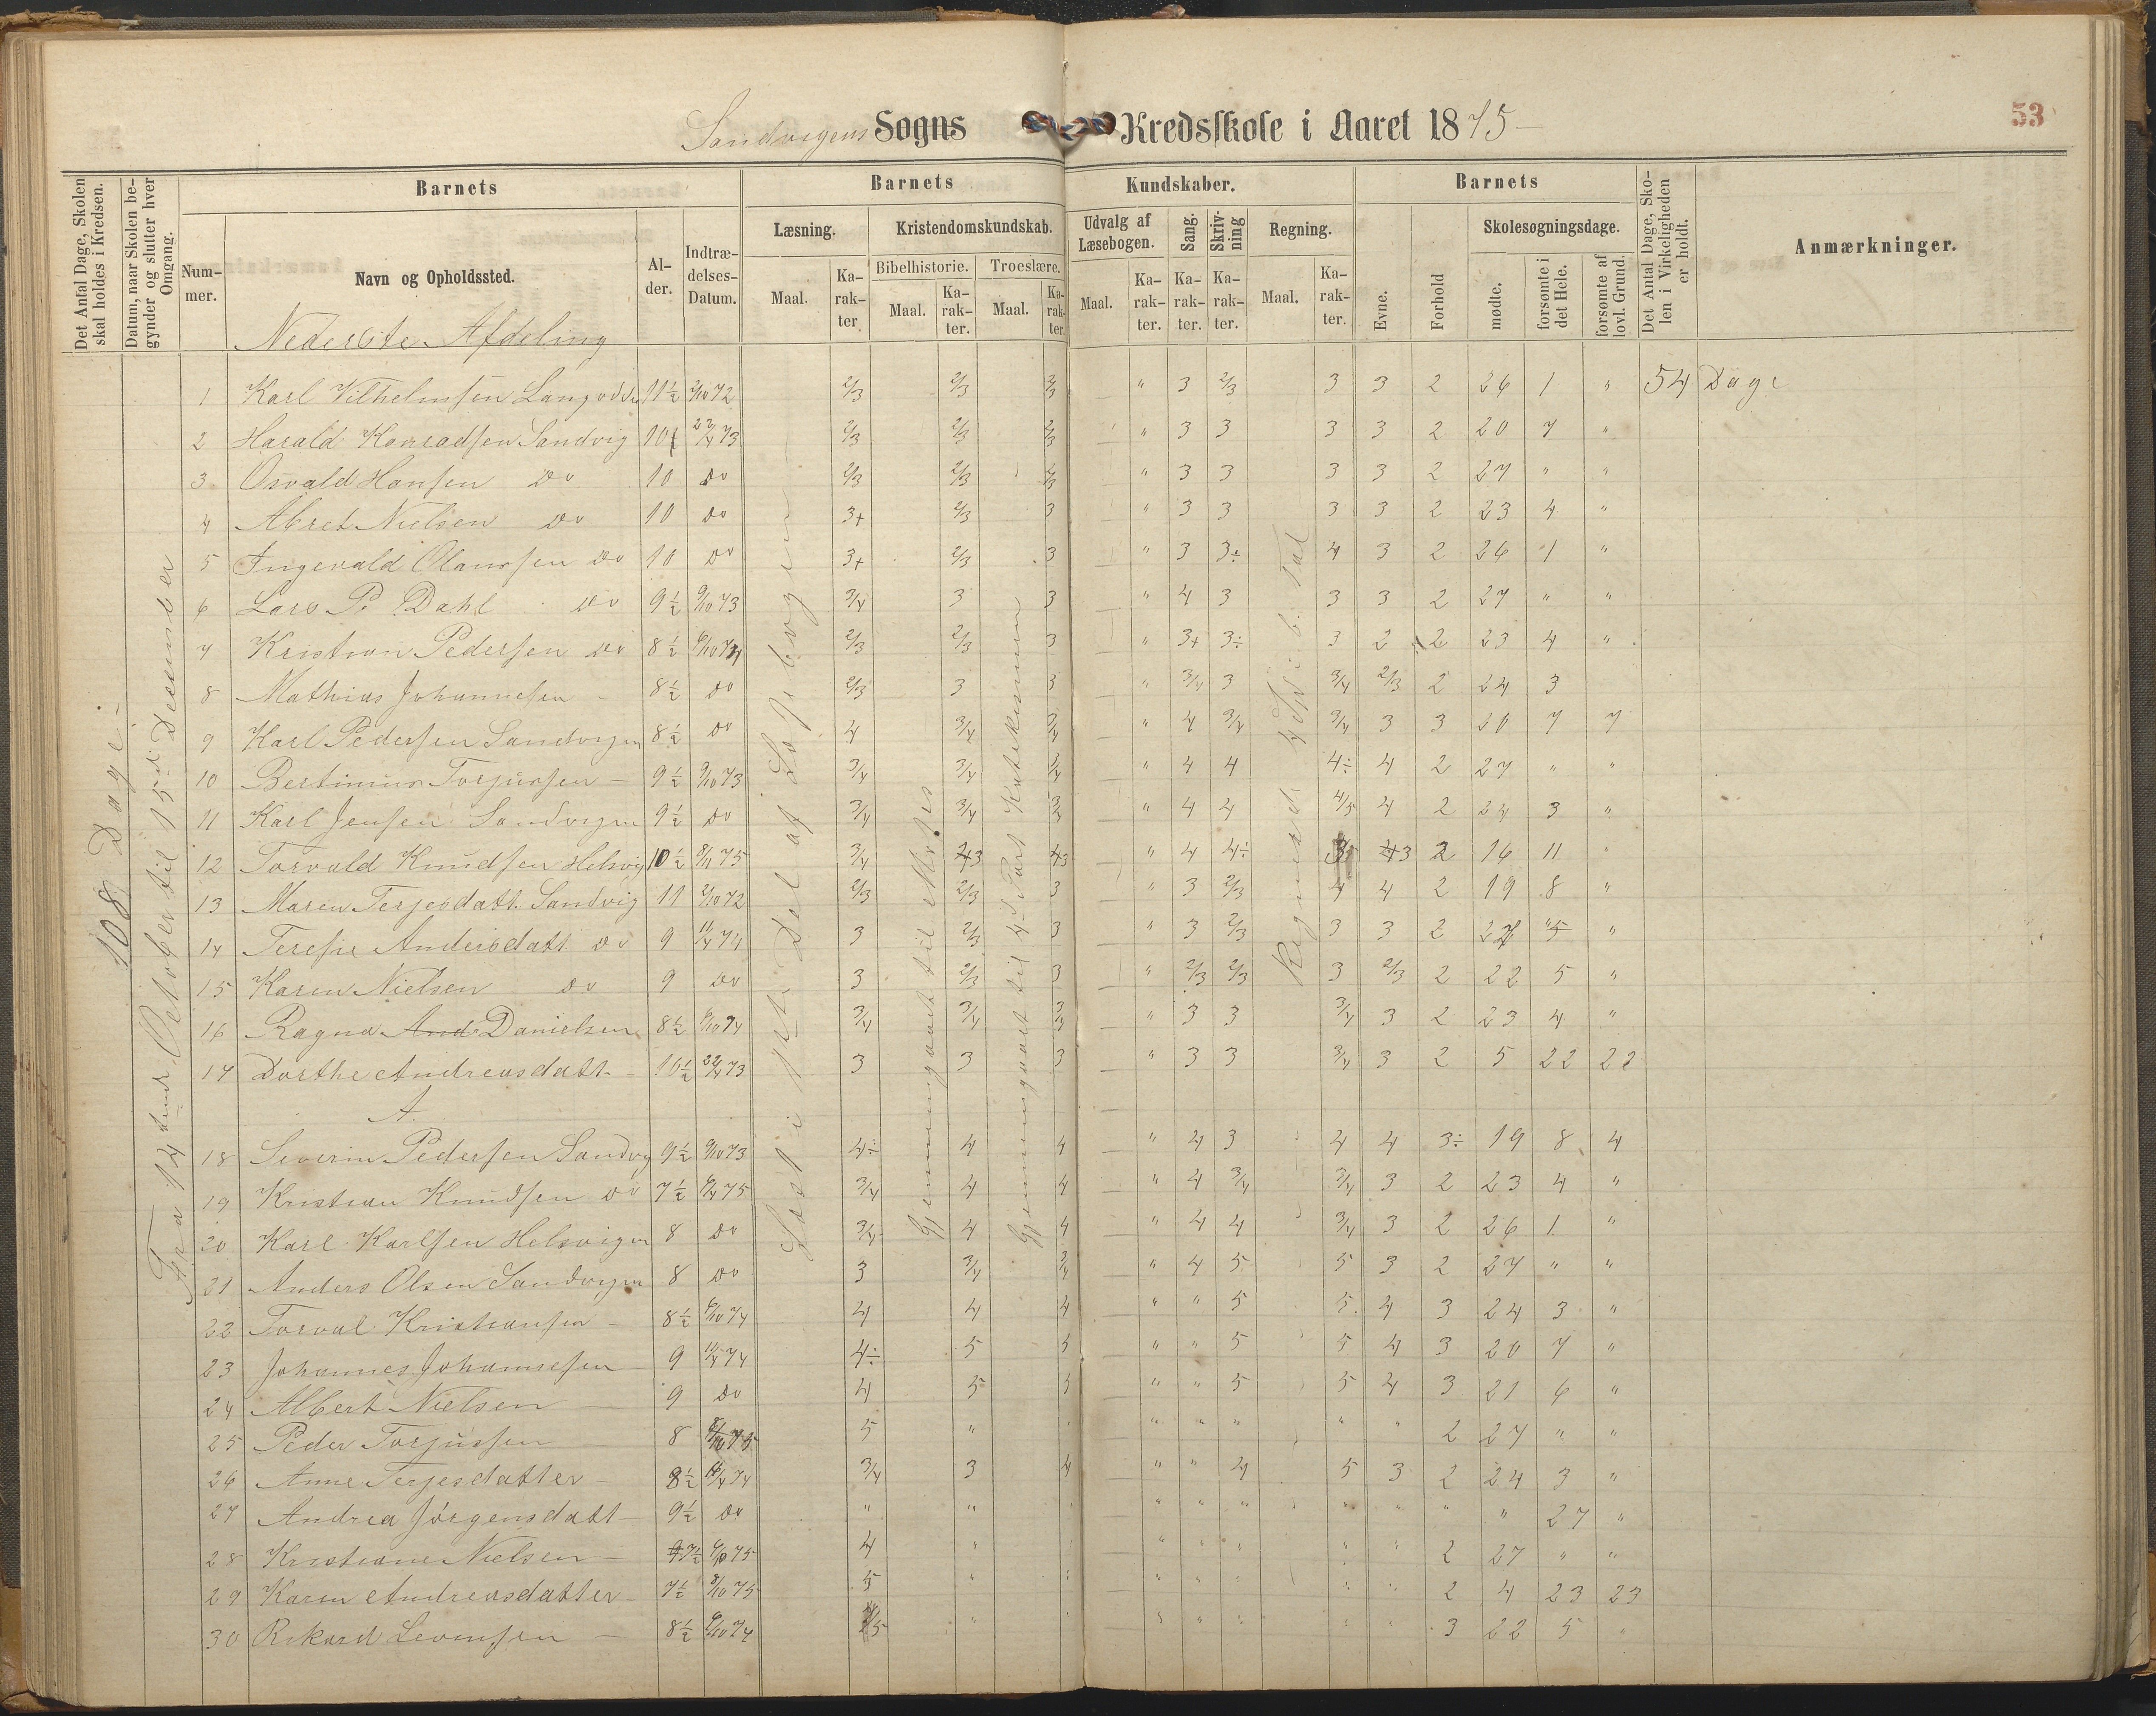 Sandvigens Sogns Kredsskole i Aaret 1875
53
Det Antal Dage, Skolen skal holdes i Kredsen.
Datum, naar Skolen begynder og slutter hver Omgang.
Barnets
Barnets
Kundskaber.
Barnets
Det Antal Dage, Skolen i Virkeligheden er holdt.
Anmærkninger.
Nummer.
Navn og Opholdssted.
Alder.
Indtrædelses-Datum.
Læsning.
Kristendomskundskab.
Udvalg af Læsebogen.
Sang.
Skrivning
Regning.
Evne.
Forhold
Skolesøgningsdage.
Bibelhistorie.
Troeslære.
Maal.
Karakter
Maal.
Karakter.
Maal.
Karakter.
Maal.
Karakter.
Karakter.
Karakter.
Maal.
Karakter.
mødte.
forsømte i det Hele.
forsømte af lovl. Grund.
Nederste Afdeling
108 Dage
Fra 14 October til 15de December
Læst i 1ste Del af Læsebogen
Gjennemgaaet til Moses
Gjennemgaaet til 4de Part Katekismen
1 Karl Vilhelmsen 11½ 2/10 72 2/3 2/3 2/3 " 3 2/3 3 3 2 26 1 " 54 Dage
2 Harald Konradsen Sandvig 10 22/4 73 2/3 2/3 2/3 " 3 3 3 3 2 20 7 "
3 Osvald Hansen Do 10 Do 2/3 2/3 2/3 " 3 3 3 3 2 27 " "
4 Abret Nielsen Do 10 Do 3+ 2/3 3 " 3 3 3 3 2 23 4 "
5 Ingevald Olaussen Do 10 Do 3+ 2/3 3 " 3 3÷ 4 3 2 26 1 "
6 Lars P. Dahl Do 9½ 9/10 73 3/4 3 3 " 4 3 3 3 2 27 " "
7 Kristian Pedersen Do 8½ 6/10 74 2/3 2/3 3 " 3+ 3÷ 3 2 2 23 4 "
8 Mathias Johannesen 8½ Do 2/3 3 3 " 3/4 3 3/4 2/3 2 24 3
9 Karl Pedersen Sandvigen 8½ Do 4 3/4 3/4 " 4 3/4 3/4 3 3 20 7 7
10 Bertinius Torjussen 9½ 9/10 73 3/4 3/4 3/4 " 4 4 4÷ 4 2 27 " "
11 Karl Jensen Sandvigen 9½ Do 3/4 3/4 3/4 " 4 4 4/5 4 2 24 3 "
12 Torvald Knudsen Helsvig 10½ 8/11 75 3/4 3 3 " 4 4÷ 3 2 16 11 "
13 Maren Terjesdatt. Sandvig 11 2/10 72 2/3 2/3 3 " 3 2/3 4 4 2 19 8 "
14 Teresie Andersdatt Do 9 11/4 74 3 2/3 3 " 3 2/3 3 3 2 27 " "
15 Karen Nielsen Do 9 Do 3 2/3 3 " 2/3 2/3 3 2/3 2 22 5 "
16 Ragna And Danielsen 8½ 6/10 74 3/4 3/4 3/3 " 3 3 3/4 3 2 23 4 "
17 Dorthe Andreasdatt 10½ 22/4 73 3 3 3 " 3 3 3/4 3 2 5 22 22
A.
18 Severin Pedersen Sandvig 9½ 9/10 73 4÷ 4 4 " 4 3 4 4 3÷ 19 8 4
19 Kristian Knudsen Do 7½ 6/4 75 3/4 4 4 " 4 3/4 3/4 3 2 23 4 "
20 Karl Karlsen Helsvigen 8 Do 3/4 4 4 " 4 4 3/4 3 2 26 1 "
21 Anders Olsen Sandvigen 8 Do 3 3/4 3/4 " 4 5 5 3 2 27 " "
22 Torval Kristiansen 8½ 6/10 74 4 4 4 " " 5 5 4 3 24 3 "
23 Johannes Johannesen 9 11/4 74 4÷ 5 5 " " 5 5 4 3 20 7 "
24 Albert Nielsen 9 Do 4 5 5 " " 5 5 4 3 21 6 "
25 Peder Torjussen 8 75 5 " " " " " " 2 27 " "
26 Anne Terjesdatter 8½ 11/4 74 3/4 3 4 " " 4 5 3 2 24 3 "
27 Andrea Jörgensdatt 9½ Do " " " " " " " " " " 27 "
28 Kristiane Nielsen 7½ 6/10 75 4 " " " " " " 2 27 " "
29 Karen Andreasdatter 7½ 8/10 75 5 " " " " " " 2 4 23 23
30 Rikard Levinsen 8½ 6/10 74 5 " " " " " " 3 22 5 "